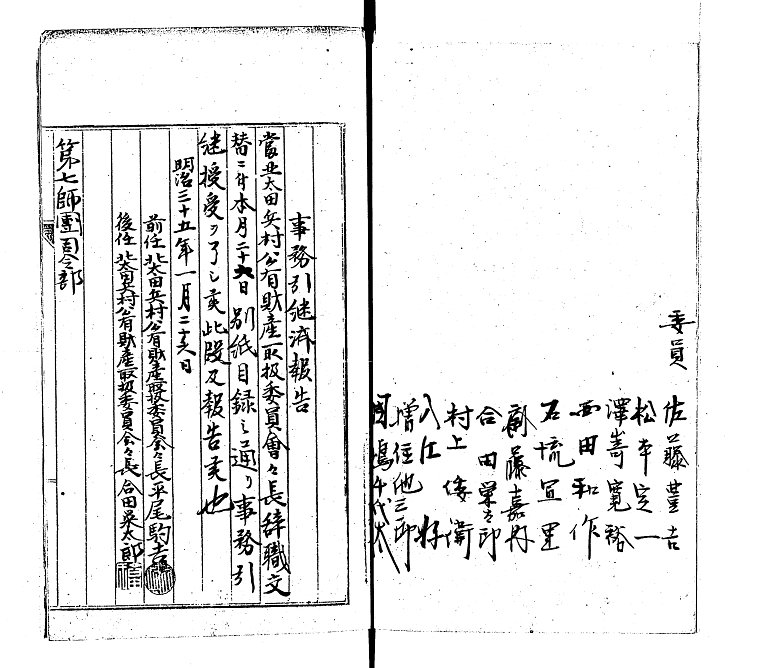 委員
佐藤豊吉
松本定一
澤嵜寛裕
西田和作
石流宣里
藤嘉
合田栄三郎
村上倭衛
入江好
増住他三郎
國嶋千代太
事務引継済報告
當北太田兵村公有財産取扱委員會々長辞職文
替ニ付本月二十六日別紙目録之通リ事務引
継授受ヲ了シ候此段及報告候也
明治三十五年一月二十六日
前任北太田兵村公有財産取扱委員会々長平尾駒吉
後任北太田兵村公有財産取扱委員会々長合田栄太郎
第七師團司令部